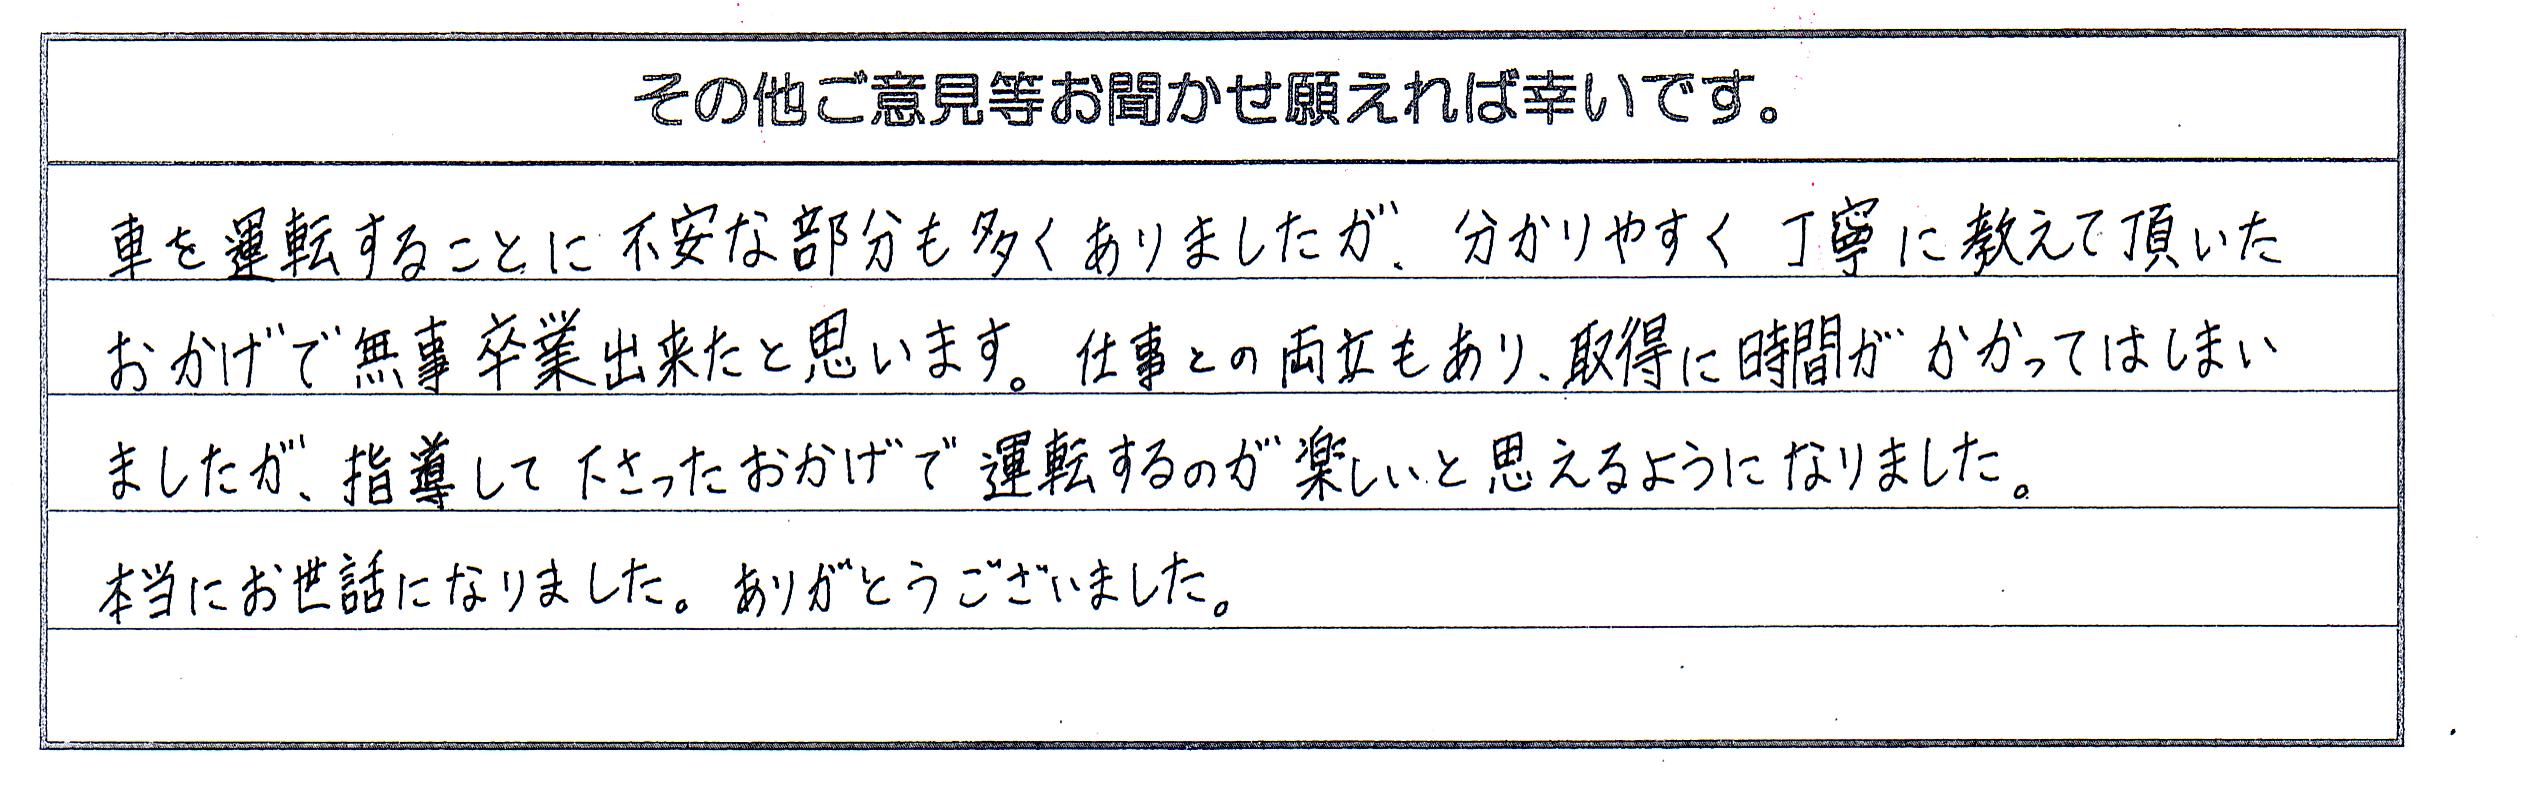 その他ご意見等お聞かせ願えれば幸いです。
車を運転することに不安な部分も多くありましたが、分かりやすく丁寧に教えて頂いた
おかげで無事卒業出来たと思います。仕事との両立もあり、取得に時間がかかってはしまい
ましたが、指導して下さったおかげで運転するのが楽しいと思えるようになりました。
本当にお世話になりました。ありがとうございました。